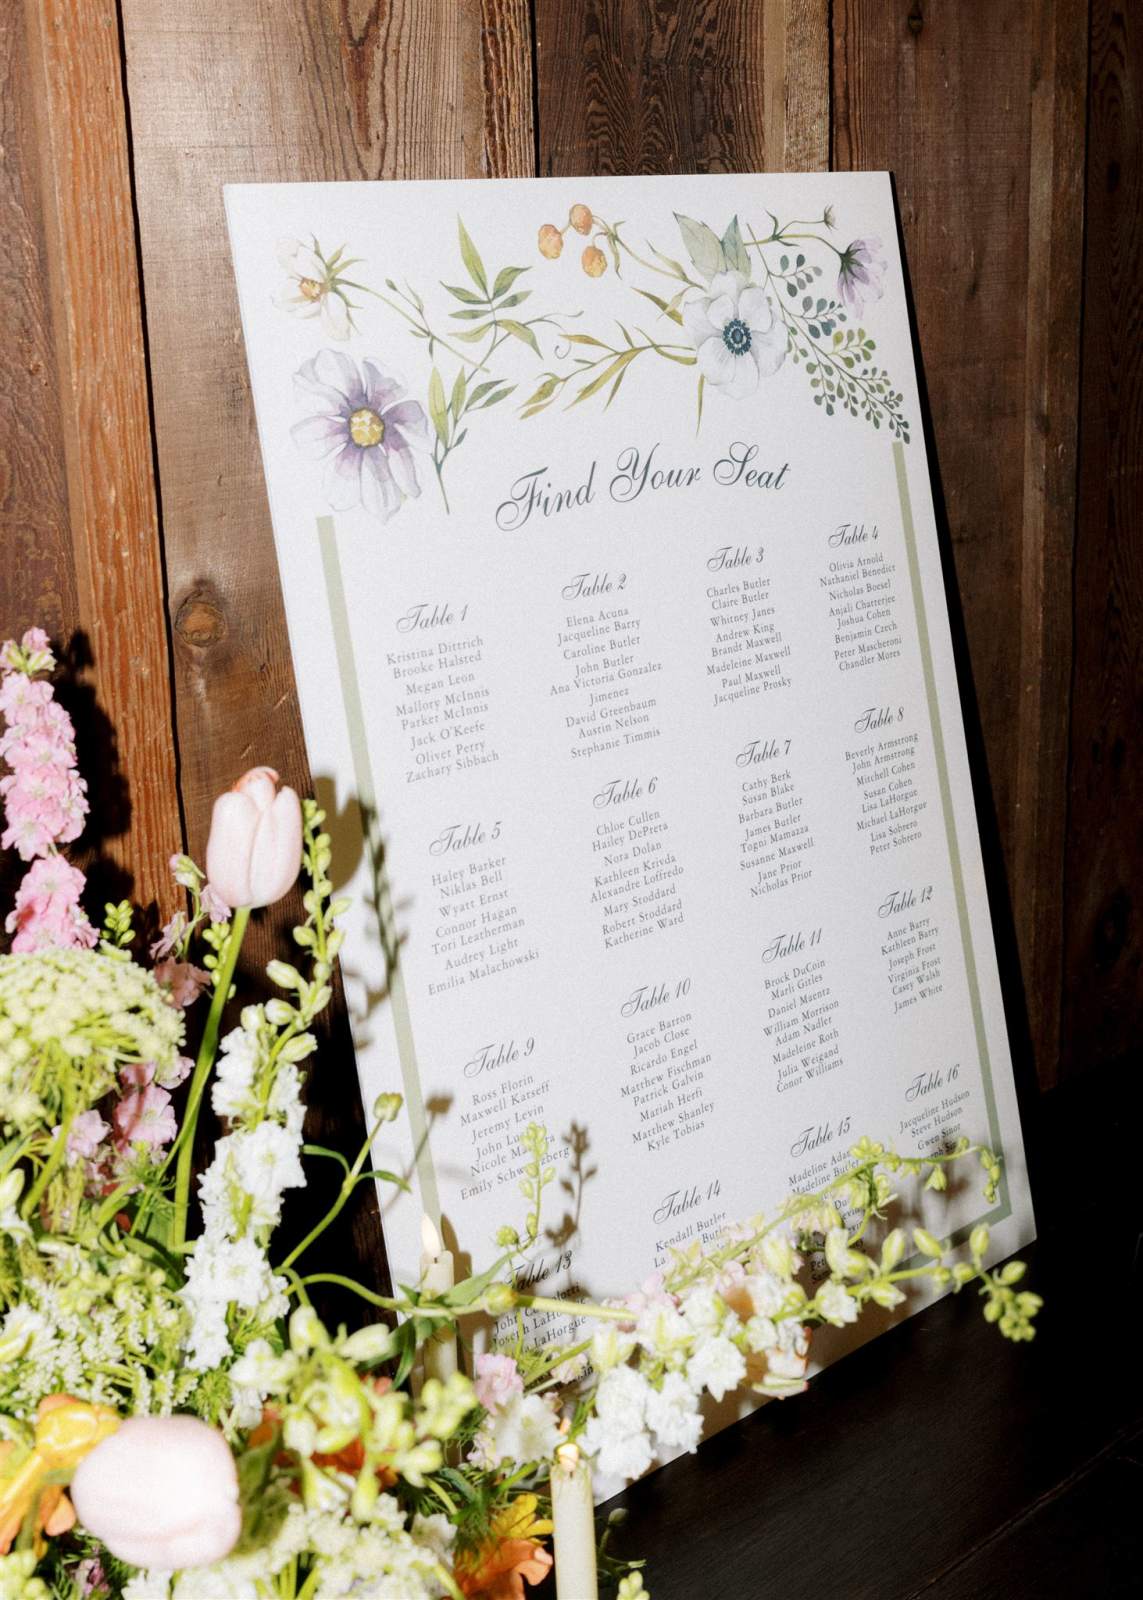 Find Your Seat
Table 1
Kristina Dittrich
Brooke Halsted
Megan Leon
Mallory McInnis
Parker McInnis
Jack O'Keefe
Oliver Perry
Zachary Sibbach
Table 2
Elena Acuna
Jacqueline Barry
Caroline Butler
John Butler
Ana Victoria Gonzalez
Jimenez
David Greenbaum
Austin Nelson
Stephanie Timmis
Table 3
Charles Butler
Claire Butler
Whitney Janes
Andrew King
Brandt Maxwell
Madeleine Maxwell
Paul Maxwell
Jacqueline Prosky
Table 4
Olivia Arnold
Nathaniel Benedict
Nicholas Boesel
Anjali Chatterjee
Joshua Cohen
Benjamin Czech
Peter Mascheroni
Chandler Mores
Table 5
Haley Barker
Niklas Bell
Wyatt Ernst
Connor Hagan
Tori Leatherman
Audrey Light
Emilia Malachowski
Table 6
Chloe Cullen
Hailey DePreta
Nora Dolan
Kathleen Krivda
Alexandre Loffredo
Mary Stoddard
Robert Stoddard
Katherine Ward
Table 7
Cathy Berk
Susan Blake
Barbara Butler
James Butler
Togni Mamazza
Susanne Maxwell
Jane Prior
Nicholas Prior
Table 8
Beverly Armstrong
John Armstrong
Mitchell Cohen
Susan Cohen
Lisa LaHorgue
Michael LaHorgue
Lisa Sobrero
Peter Sobrero
Table 9
Ross Florin
Maxwell Katseff
Jeremy Levin
John
Nicole
Emily
Table 10
Grace Barron
Jacob Close
Ricardo Engel
Matthew Fischman
Patrick Galvin
Mariah Herfi
Matthew Shanley
Kyle Tobias
Table 11
Brock DuCoin
Marli Gitles
Daniel Maentz
William Morrison
Adam Nadler
Madeleine Roth
Julia Weigand
Conor Williams
Table 12
Anne Barry
Kathleen Barry
Joseph Frost
Virginia Frost
Casey Walsh
James White
Table 13
John
Joseph LaHorgue
LaHorgue
Table 14
Kendall Butler
Table 15
Madeline
Madeline Butler
Table 16
Jacqueline Hudson
Steve Hudson
Gwen Sinor